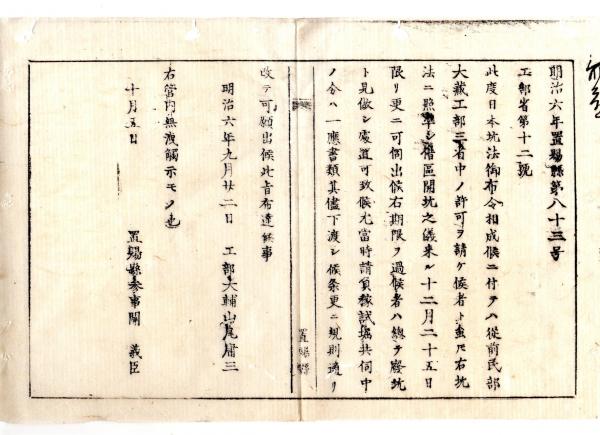 明治六年置賜縣第八十三号
工部省第十二號
此度日本坑法御布令相成候ニ付テハ從前民部
大藏工部三省中ノ許可ヲ請ケ候者ト雖𪜈右坑
法ニ照準シ借區開坑之儀来ル十二月二十五日
限リ更ニ可伺出候右期限ヲ過候者ハ總テ廢坑
ト見做シ處置可致候尤當時請負稼試堀共伺中
ノ分ハ一應書類其儘下渡シ候条更ニ規則通リ
置賜縣
改テ可願出候此旨布達候事
明治六年九月廿二日 工部大輔山尾庸三
右管内無洩觸示モノ也
十月五日
置賜縣参事関 義臣